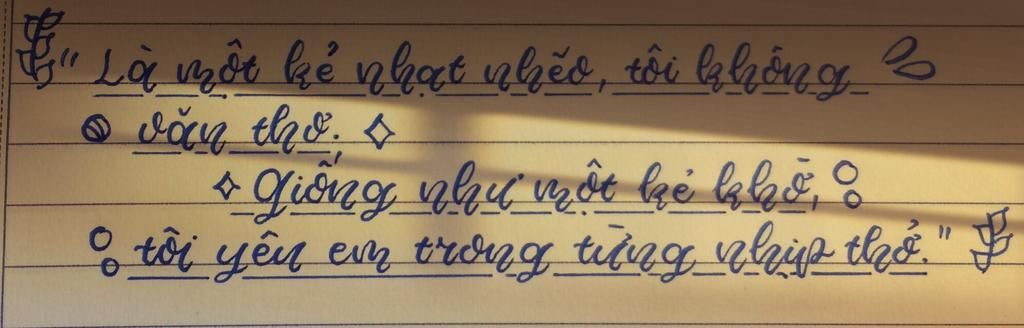 "Là một kẻ nhạt nhẽo, tôi không
văn thơ;
Giống như một kẻ khờ,
tôi yêu em trong từng nhịp thở."